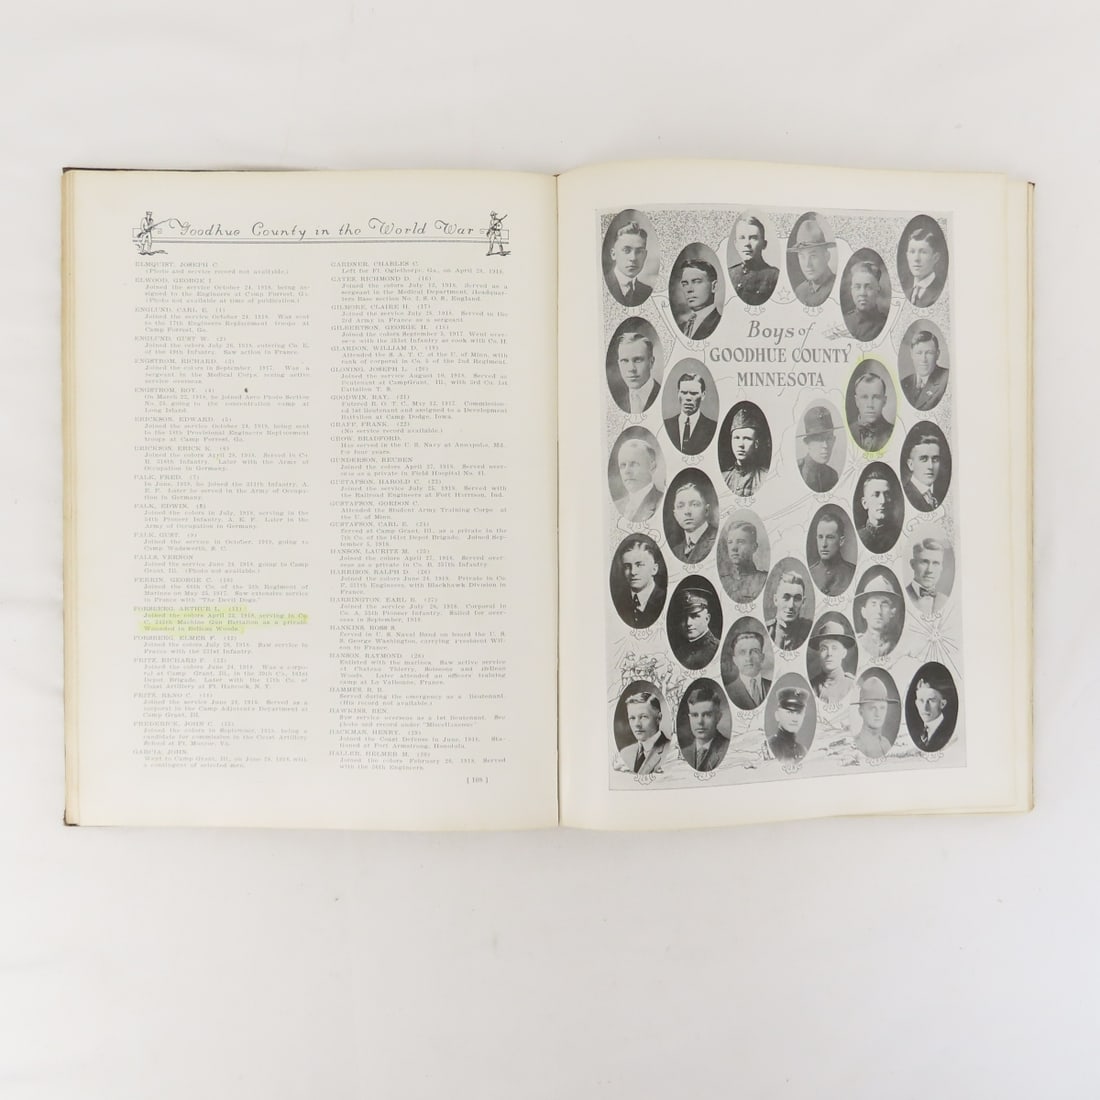 Goodhue County in the World War
ELMQUIST, JOSEPH C.
(Photo and service record not available.)
ELWOOD, GEORGE I.
Joined the service October 24, 1918, being as-
signed to the Engineers at Camp Forrest, Ga.
(Photo not available at time of publication.)
ENGLUND, CARL E. (1)
Joined the service October 24, 1918. Was sent
to the 17th Engineers Replacement troops at
Camp Forrest, Ga.
ENGLUND, GUST W. (2)
Joined the service July 26, 1918, entering Co. E.
of the 19th Infantry. Saw action in France.
ENGSTROM, RICHARD. (3)
Joined the colors in September, 1917. Was a
sergeant in the Medical Corps, seeing active
service overseas.
ENGSTROM, ROY. (4)
On March 22, 1918, he joined Aero Photo Section
No. 24, going to the concentration camp at
Long Island.
ERICKSON, EDWARD. (5)
Joined the service October 24, 1918, being sent
to the 18th Provisional Engineers Replacement
troops at Camp Forrest, Ga.
ERICKSON, ERICK K. (6)
Joined the colors April 29, 1918. Served in Co.
B. 318th Infantry. Later with the Army of
Occupation in Germany.
FALK, FRED. (7)
In June, 1918, he joined the 311th Infantry, A.
E. F. Later he served in the Army of Occupa-
tion in Germany.
FALK, EDWIN. (8)
Joined the colors in July, 1918, serving in the
54th Pioneer Infantry, A. E. F. Later in the
Army of Occupation in Germany.
FALK, GUST. (9)
Joined the service in October, 1919, going to
Camp Wadsworth, S. C.
FALLS, VERNON
Joined the service June 24, 1918, going to Camp
Grant, Ill. (Photo not available.)
FERRIN, GEORGE C. (10)
Joined the 66th Co. of the 5th Regiment of
Marines on May 25, 1917. Saw extensive service
in France with "The Devil Dogs."
FORSBERG, ARTHUR L. (11)
Joined the colors April 23, 1918, serving in Co.
C. 345th Machine Gun Battalion as a private.
Wounded in Belleau Woods.
FORSBERG, ELMER F. (12)
Joined the colors July 28, 1918. Saw service in
France with the 221st Infantry.
FRITZ, RICHARD F. (13)
Joined the colors June 24, 1918. Was a corpo-
ral at Camp Grant, Ill., in the 29th Co. 161st
Depot Brigade. Later with the 17th Co. of
Coast Artillery at Ft. Hancock, N. Y.
FRITZ, RENO C. (14)
Joined the service June 24, 1918. Served as a
corporal in the Camp Adjutants Department at
Camp Grant, Ill.
FREDERICK, JOHN C. (15)
Joined the colors in September, 1918, being a
candidate for commission in the Coast Artillery
School at Ft. Monroe, Va.
GARCIA, JOHN.
Went to Camp Grant, Ill., on June 28, 1918, with
a contingent of selected men.
GARDNER, CHARLES C.
Left for Ft. Oglethorpe, Ga., on April 28, 1918.
GATES, RICHMOND D. (16)
Joined the colors July 12, 1918. Served as a
sergeant in the Medical Department, Headquar-
ters Base section No. 2, S. O. S., England.
GILMORE, CLAIRE H. (17)
Joined the service July 26, 1918. Served in the
3rd Army in France as a sergeant.
GILBERTSON, GEORGE H. (18)
Joined the colors September 5, 1917. Went over-
seas with the 351st Infantry as cook with Co. H.
GLARDON, WILLIAM D. (19)
Attended the S. A. T. C. at the U. of Minn. with
rank of corporal in Co. 5 of the 2nd Regiment.
GLONING, JOSEPH L. (20)
Joined the colors August 10, 1918. Served as
lieutenant at CampGrant, Ill., with 3rd Co. 1st
Battalion T. S.
GOODWIN, RAY. (21)
Entered R. O. T. C., May 12, 1917. Commission-
ed 1st lieutenant and assigned to a Development
Battalion at Camp Dodge, Iowa.
GRAFF, FRANK. (22)
(No service record available.)
GROW, BRADFORD.
Has served in the U. S. Navy at Annapolis, Md.
for four years.
GUNDERSON, REUBEN
Joined the colors April 27, 1918. Served over-
seas as a private in Field Hospital No. 41.
GUSTAFSON, HAROLD C. (23)
Joined the service July 25, 1918. Served with
the Railroad Engineers at Fort Harrison, Ind.
GUSTAFSON, GORDON C.
Attended the Student Army Training Corps at
the U. of Minn.
GUSTAFSON, CARL E. (24)
Served at Camp Grant, Ill., as a private in the
7th Co. of the 161st Depot Brigade. Joined Sep-
tember 5, 1918.
HANSON, LAURITZ M. (25)
Joined the colors April 27, 1918. Served over-
seas as a private in Co. B. 357th Infantry.
HARRISON, RALPH D. (26)
Joined the colors June 24, 1918. Private in Co.
F, 311th Engineers, with Blackhawk Division in
France.
HARRINGTON, EARL R. (27)
Joined the service July 26, 1918. Corporal in
Co. A, 55th Pioneer Infantry. Sailed for over-
seas in September, 1918.
HANKINS, ROSS S.
Served in U. S. Naval Band on board the U. S.
S. George Washington, carrying President Wil-
son to France.
HANSON, RAYMOND. (28)
Enlisted with the marines. Saw active service
at Chateau Thierry, Soissons and Belleau
Woods. Later attended an officers training
camp at La Valbonne, France.
HAMMER, R. B.
Served during the emergency as a lieutenant.
(His record not available.)
HAWKINS, BEN.
Saw service overseas as a 1st lieutenant. See
photo and record under "Miscellaneous"
HACKMAN, HENRY. (29)
Joined the Coast Defense in June, 1918. Sta-
tioned at Fort Armstrong, Honolulu.
HALLER, HELMER M. (30)
Joined the colors February 28, 1918. Served
with the 36th Engineers.
[ 108 ]
Boys of
GOODHUE COUNTY
MINNESOTA